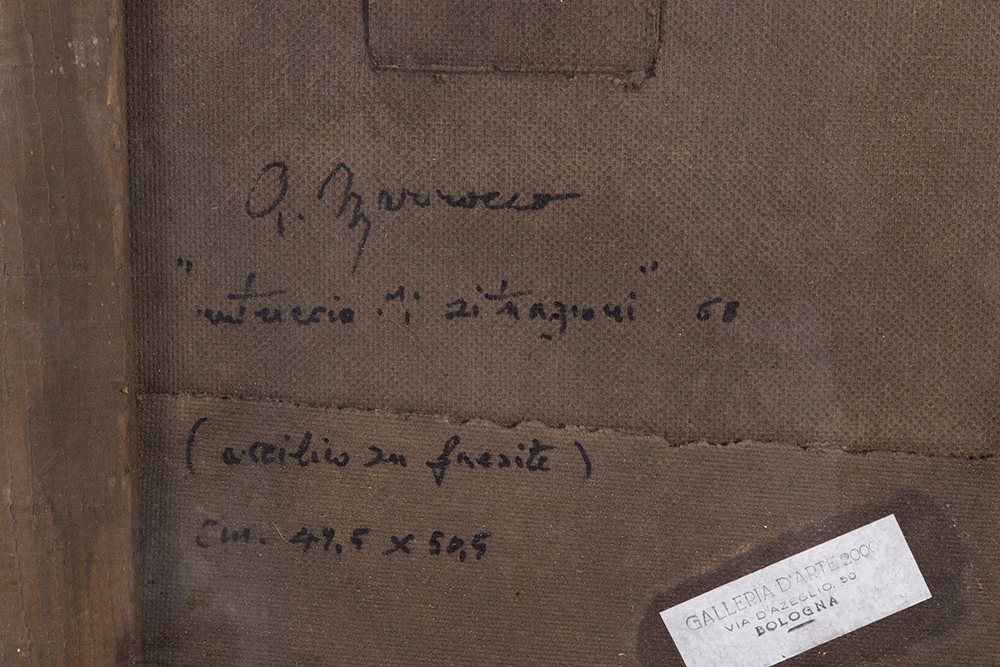 "intreccio di situazioni" 68
(acrilico su faesite)
cm. 49,5 x 50,5
GALLERIA D'ARTE 2000
VIA D'AZEGLIO, 50
BOLOGNA